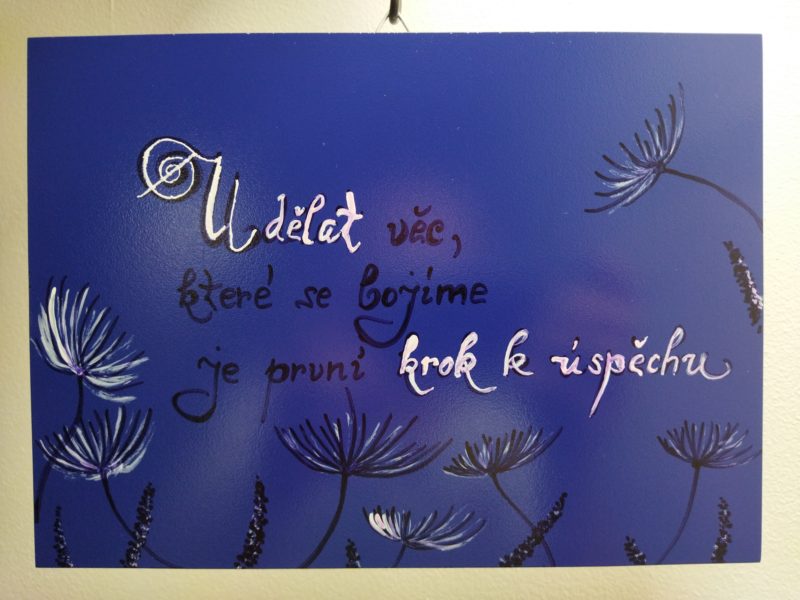 Udělat věc,
které se bojíme
je první krok k úspěchu